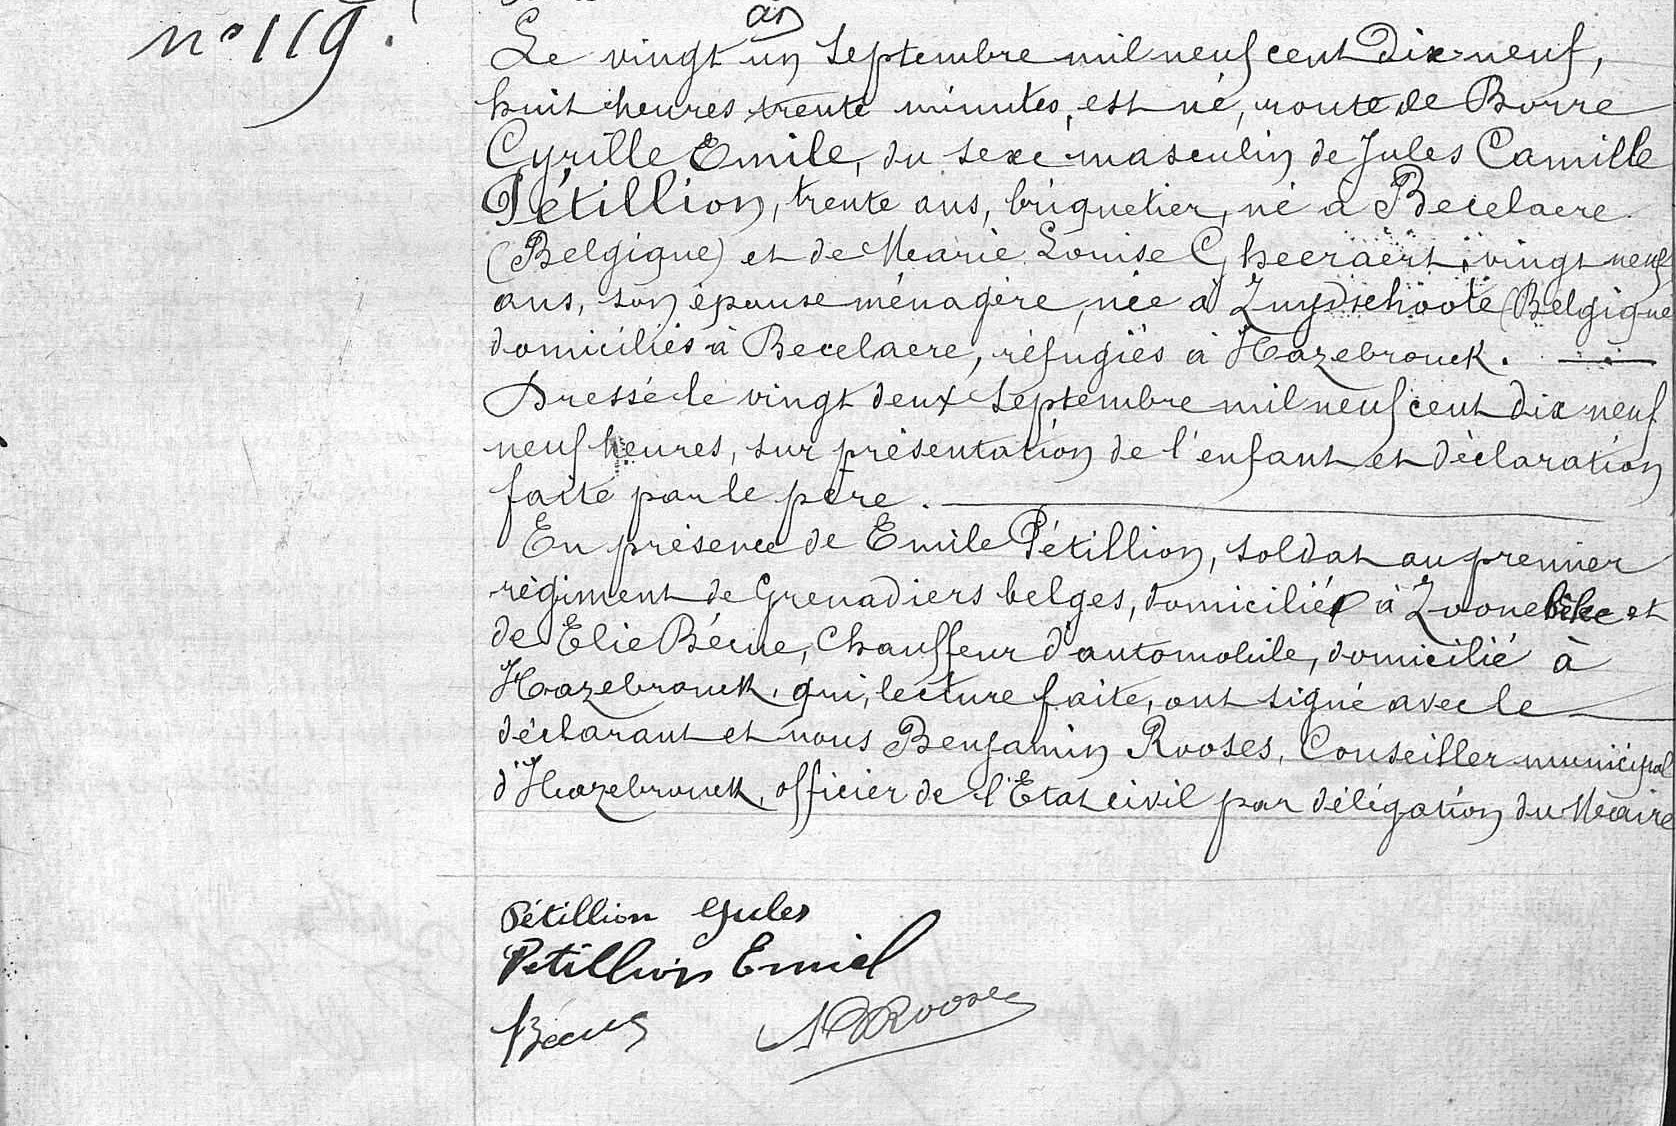 n° 119.
Le vingt un septembre mil neuf cent dix neuf,
huit heures trente minutes, est né, route de Borre
Cyrille Emile, du sexe masculin de Jules Camille
Pétillion, trente ans, briquetier, né à Becelaere
(Belgique) et de Marie Louise Gheeraert, vingt neuf
ans, son épouse ménagère, née à Zuydschoote (Belgique
domiciliés à Becelaere, réfugiés à Hazebrouck.
Dressé le vingt deux septembre mil neuf cent dix neuf
neuf heures, sur présentation de l'enfant et déclaration
faite par le père.
En présence de Emile Pétillion, soldat au premier
régiment de Grenadiers belges, domicilié à et
de Elie Bécue, Chauffeur d'automobile, domicilié à
Hazebrouck, qui, lecture faite, ont signé avec le
déclarant et nous Benjamin Rooses, Conseiller municipal
d'Hazebrouck, officier de l'Etat civil par délégation du Maire
Pétillion Jules
Petillion Emiel
Bécue Rooses